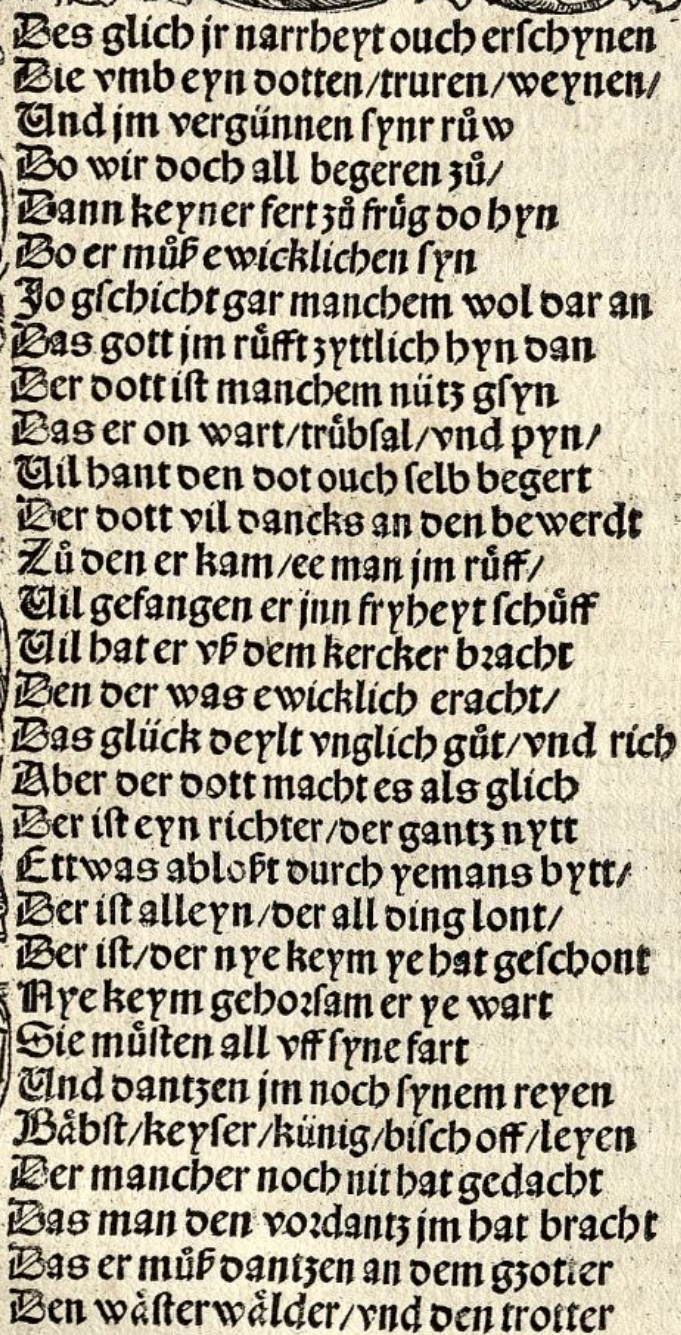 Des glich jr narrheyt ouch erſchynen
Die vmb eyn dotten/truren/weynen/
Und jm vergünnen ſynr ruͦw
Do wir doch all begeren zuͦ/
Dann keyner fert zuͦ fruͤg do hyn
Do er muͦß ewicklichen ſyn
Jo gſchicht gar manchem wol dar an
Das gott jm ruͤfft zyttlich hyn dan
Der dott iſt manchem nütz gſyn
Das er on wart/truͤbſal/vnd pyn/
Uil hant den dot ouch ſelb begert
Der dott vil dancks an den bewerdt
Zuͦ den er kam/ee man jm ruͤff/
Uil gefangen er jnn fryheyt ſchuͤff
Uil hat er vß dem kercker bracht
Den der was ewicklich eracht/
Das glück deylt vnglich guͦt/vnd rich
Aber der dott macht es als glich
Der iſt eyn richter/der gantz nytt
Ettwas abloßt durch yemans bytt/
Der iſt alleyn/der all ding lont/
Der iſt/der nye keym ye hat geſchont
Nye keym gehorſam er ye wart
Sie muͤſten all vff ſyne fart
Und dantzen jm noch ſynem reyen
Baͤbſt/keyſer/künig/biſchoff/leyen
Der mancher noch nit hat gedacht
Das man den vordantz jm hat bracht
Das er muͦß dantzen an dem gzotter
Den waͤſterwaͤlder/vnd den trotter